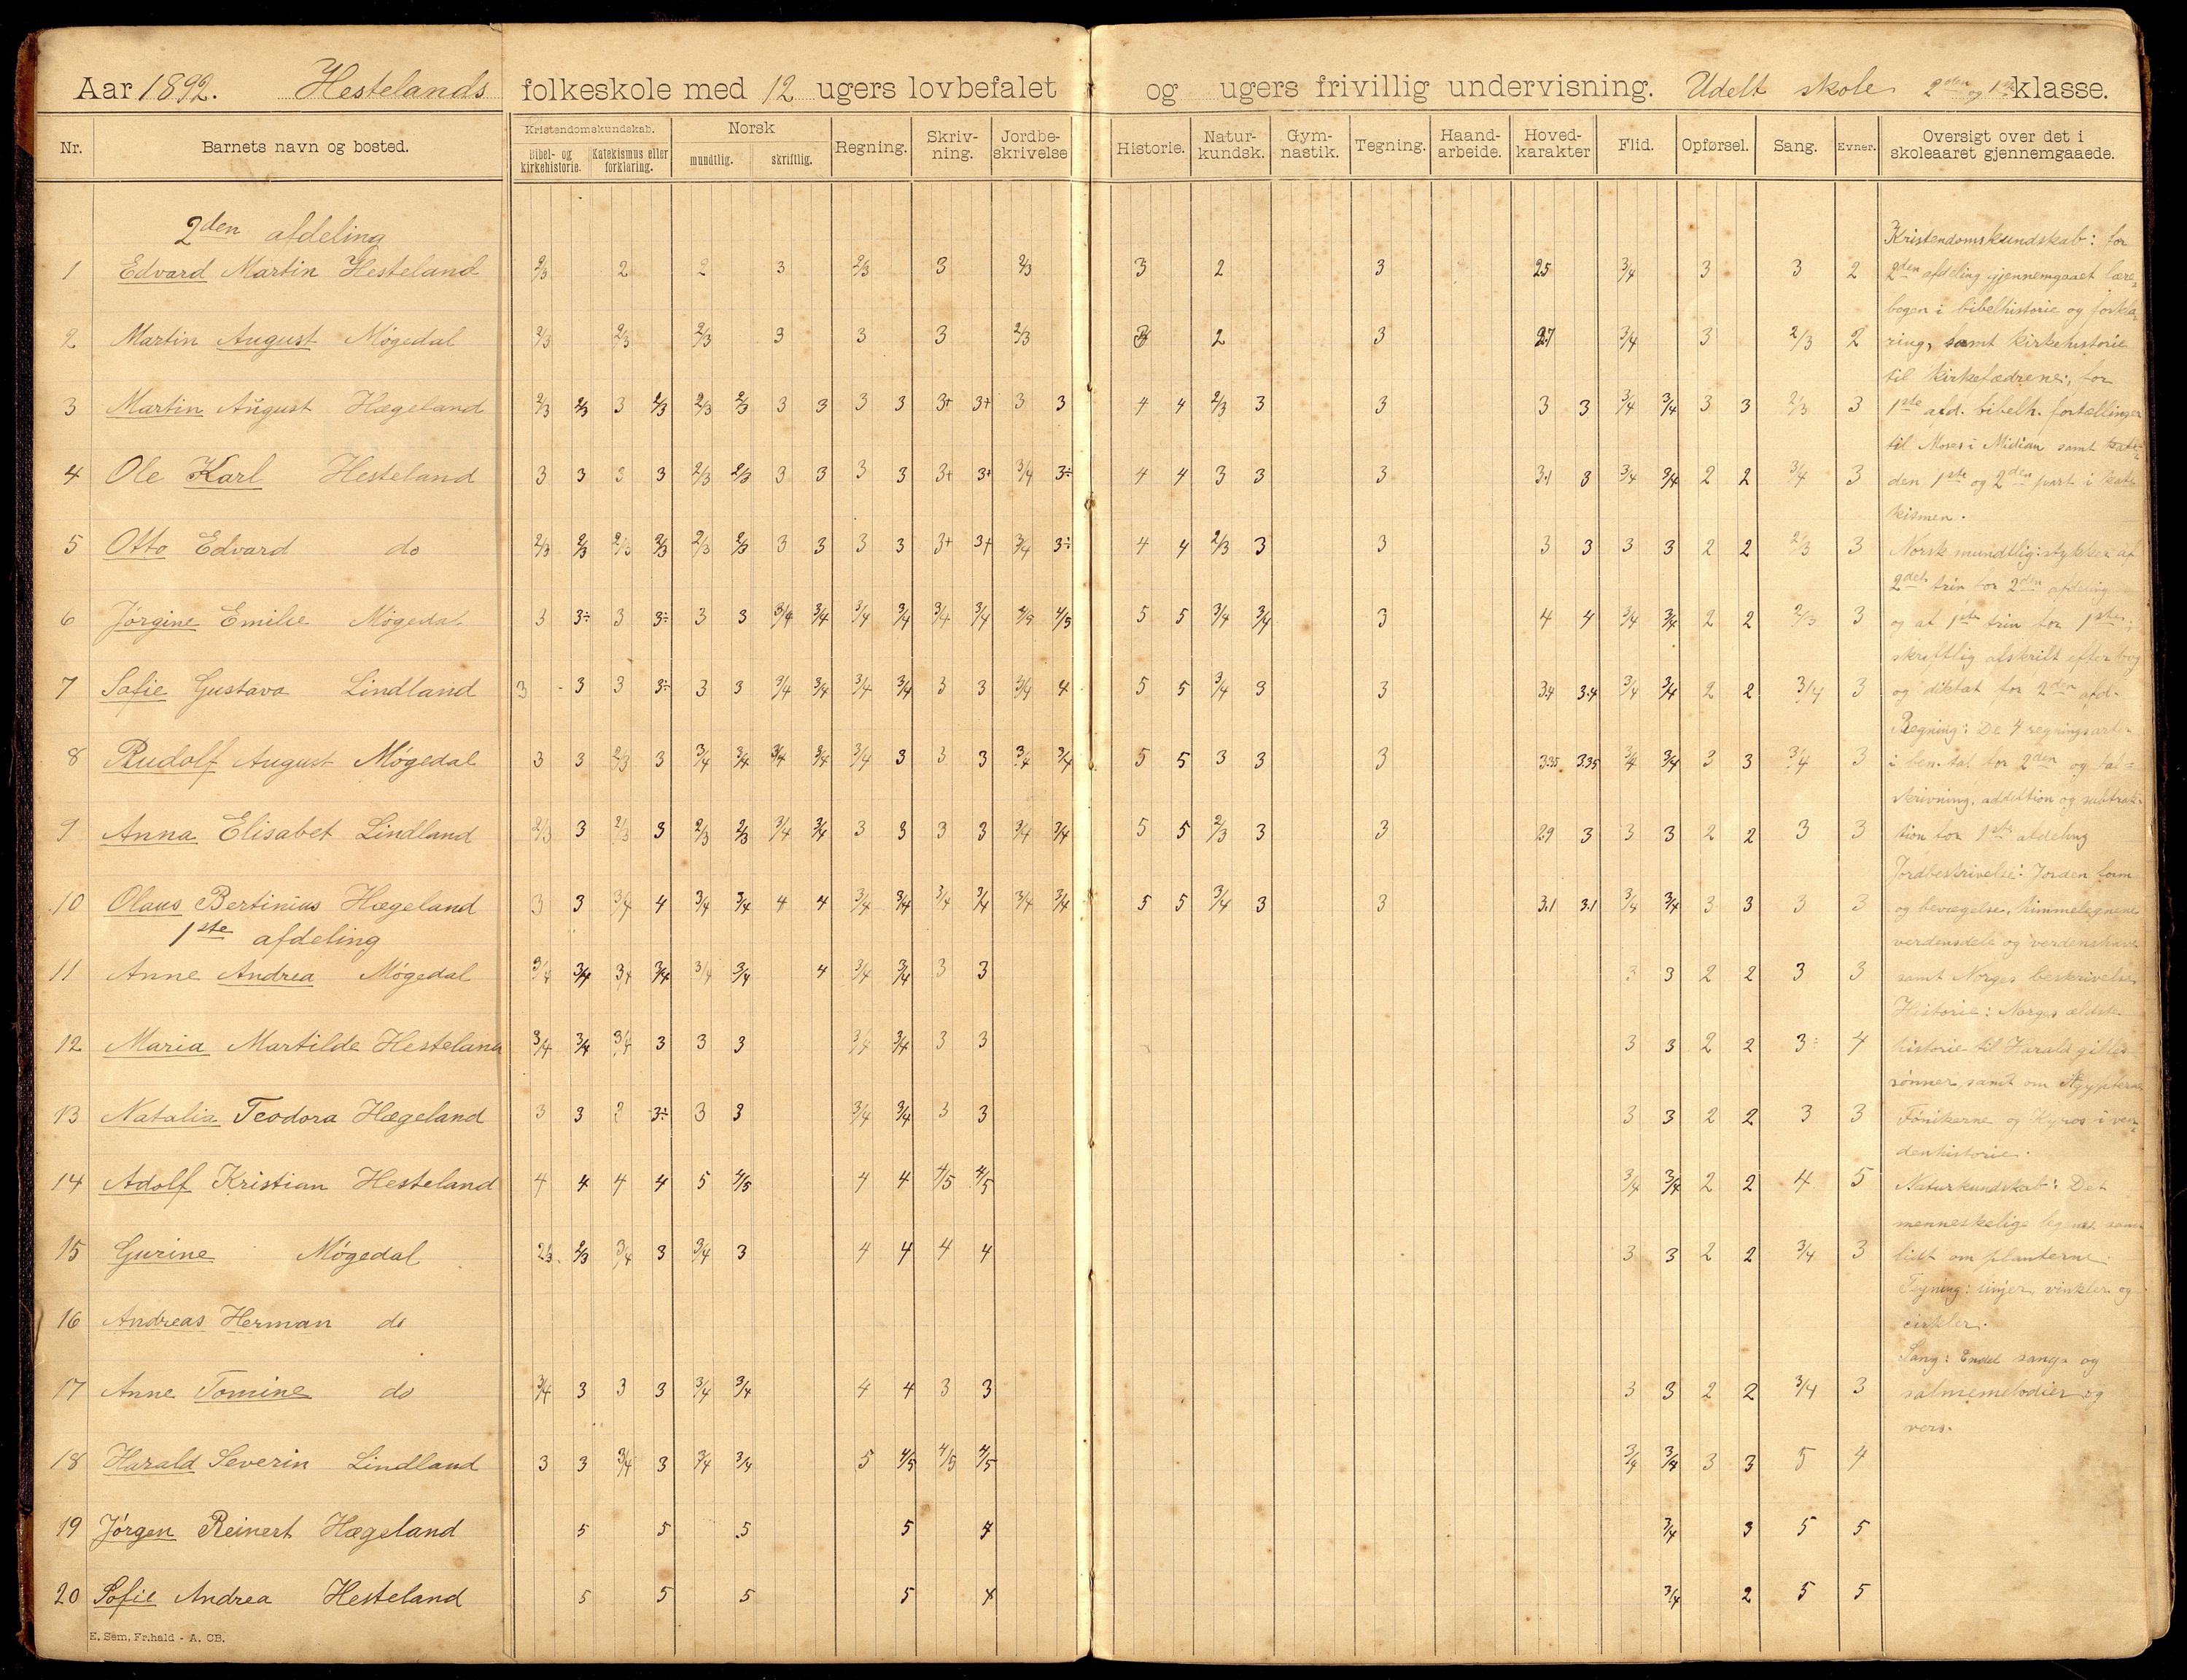 Aar 1892. Hestelands folkeskole med 12 ugers lovbefalet og ugers frivillig undervisning. Udelt skole 2den og 1ste klasse.
Nr. Barnets navn og bosted. Kristendomskundskab. Bibel- og kirkehistorie. Katekismus eller forklaring. Norsk mundtlig. skriftlig. Regning. Skriv-ning. Jordbe-skrivelse Historie. Natur-kundsk. Gym-nastik. Tegning. Haand-arbeide. Hoved-karakter Flid. Opførsel. Sang. Evner. Oversigt over det i skoleaaret gjennemgaaede.
2den afdeling
1 Edvard Martin Hesteland 2/3 2 2 3 2/3 3 2/3 3 2 3 2.5 3/4 3 3 2
2 Martin August Møgedal 2/3 2/3 2/3 3 3 3 2/3 3 2 3 2.7 3/4 3 2/3 2
3 Martin August Hægeland 2/3 2/3 3 2/3 2/3 2/3 3 3 3 3 3+ 3+ 3 3 4 4 2/3 3 3 3 3 3/4 3/4 3 3 2/3 3
4 Ole Karl Hesteland 3 3 3 3 2/3 2/3 3 3 3 3 3+ 3+ 3/4 3÷ 4 4 3 3 3 3.1 3 3/4 3/4 2 2 3/4 3
5 Otto Edvard do 2/3 2/3 2/3 2/3 2/3 2/3 3 3 3 3 3+ 3+ 3/4 3÷ 4 4 2/3 3 3 3 3 3 3 2 2 2/3 3
6 Jørgine Emilie Møgedal 3 3÷ 3 3÷ 3 3 3/4 3/4 3/4 3/4 3/4 3/4 4/5 4/5 5 5 3/4 3/4 3 4 4 3/4 3/4 2 2 2/3 3
7 Sofie Gustava Lindland 3 3 3 3÷ 3 3 3/4 3/4 3/4 3/4 3 3 3/4 4 5 5 3/4 3 3 3.4 3.4 3/4 3/4 2 2 3/4 3
8 Rudolf August Møgedal 3 3 2/3 3 3/4 3/4 3/4 3/4 3/4 3 3 3 3/4 3/4 5 5 3 3 3 3.35 3.35 3/4 3/4 3 3 3/4 3
9 Anna Elisabet Lindland 2/3 3 2/3 3 2/3 2/3 3/4 3/4 3 3 3 3 3/4 3/4 5 5 2/3 3 3 2.9 3 3 3 2 2 3 3
10 Olaus Bertinius Hægeland 3 3 3/4 4 3/4 3/4 4 4 3/4 3/4 3/4 3/4 3/4 3/4 5 5 3/4 3 3 3.1 3.1 3/4 3/4 3 3 3 3
1ste afdeling
11 Anne Andrea Møgedal 3/4 3/4 3/4 3/4 3/4 3/4 4 3/4 3/4 3 3 3 3 2 2 3 3
12 Maria Martilde Hesteland 3/4 3/4 3/4 3 3 3 3/4 3/4 3 3 3 3 2 2 3÷ 4
13 Natalia Teodora Hægeland 3 3 3 3÷ 3 3 3/4 3/4 3 3 3 3 2 2 3 3
14 Adolf Kristian Hesteland 4 4 4 4 5 4/5 4 4 4/5 4/5 3/4 3/4 2 2 4 5
15 Gurine Møgedal 2/3 2/3 3/4 3 3/4 3 4 4 4 4 3 3 2 2 3/4 3
16 Andreas Herman do
17 Anne Tomine do 3/4 3 3 3 3/4 3/4 4 4 3 3 3 3 2 2 3/4 3
18 Harald Severin Lindland 3 3 3/4 3 3/4 3/4 5 4/5 4/5 4/5 3/4 3/4 3 3 5 4
19 Jørgen Reinert Hægeland 5 5 5 5 4 3/4 3 5 5
20 Sofie Andrea Hesteland 5 5 5 5 4 3/4 2 5 5
Kristendomskundskab: for
2den afdeling gjennemgaaet lære-
bogen i bibelhistorie og forkla-
ring, samt kirkehistorie
til kirkefædrene; for
1ste afd. bibelh. fortællinger
til Moses i Midian samt
den 1ste og 2den part i kate-
kismen.
Norsk mundtlig: stykker af
2det trin for 2den afdeling
og af 1ste trin for 1ste;
skriftlig afskrift efter bog
og diktat for 2den afd.
Regning: De 4 regningsarter
i ben. tal for 2den og tal-
skrivning, addition og subtrak-
tion for 1ste afdeling
Jordbeskrivelse: Jorden form
og bevægelse, himmelegnene
verdensdele og verdenshave
samt Norges beskrivelse
Historie: Norges ældste
historie til Harald gilles
sønner, samt om Ægypterne
Fønikerne og Kyros i ver-
denhistorie.
Naturkundskab: Det
menneskelige legeme samt
lidt om planterne.
Tegning: linjer, vinkler og
cirkler.
Sang: Endel sange og
salmemelodier og
vers.
E. Sem, Fr.hald - A. CB.